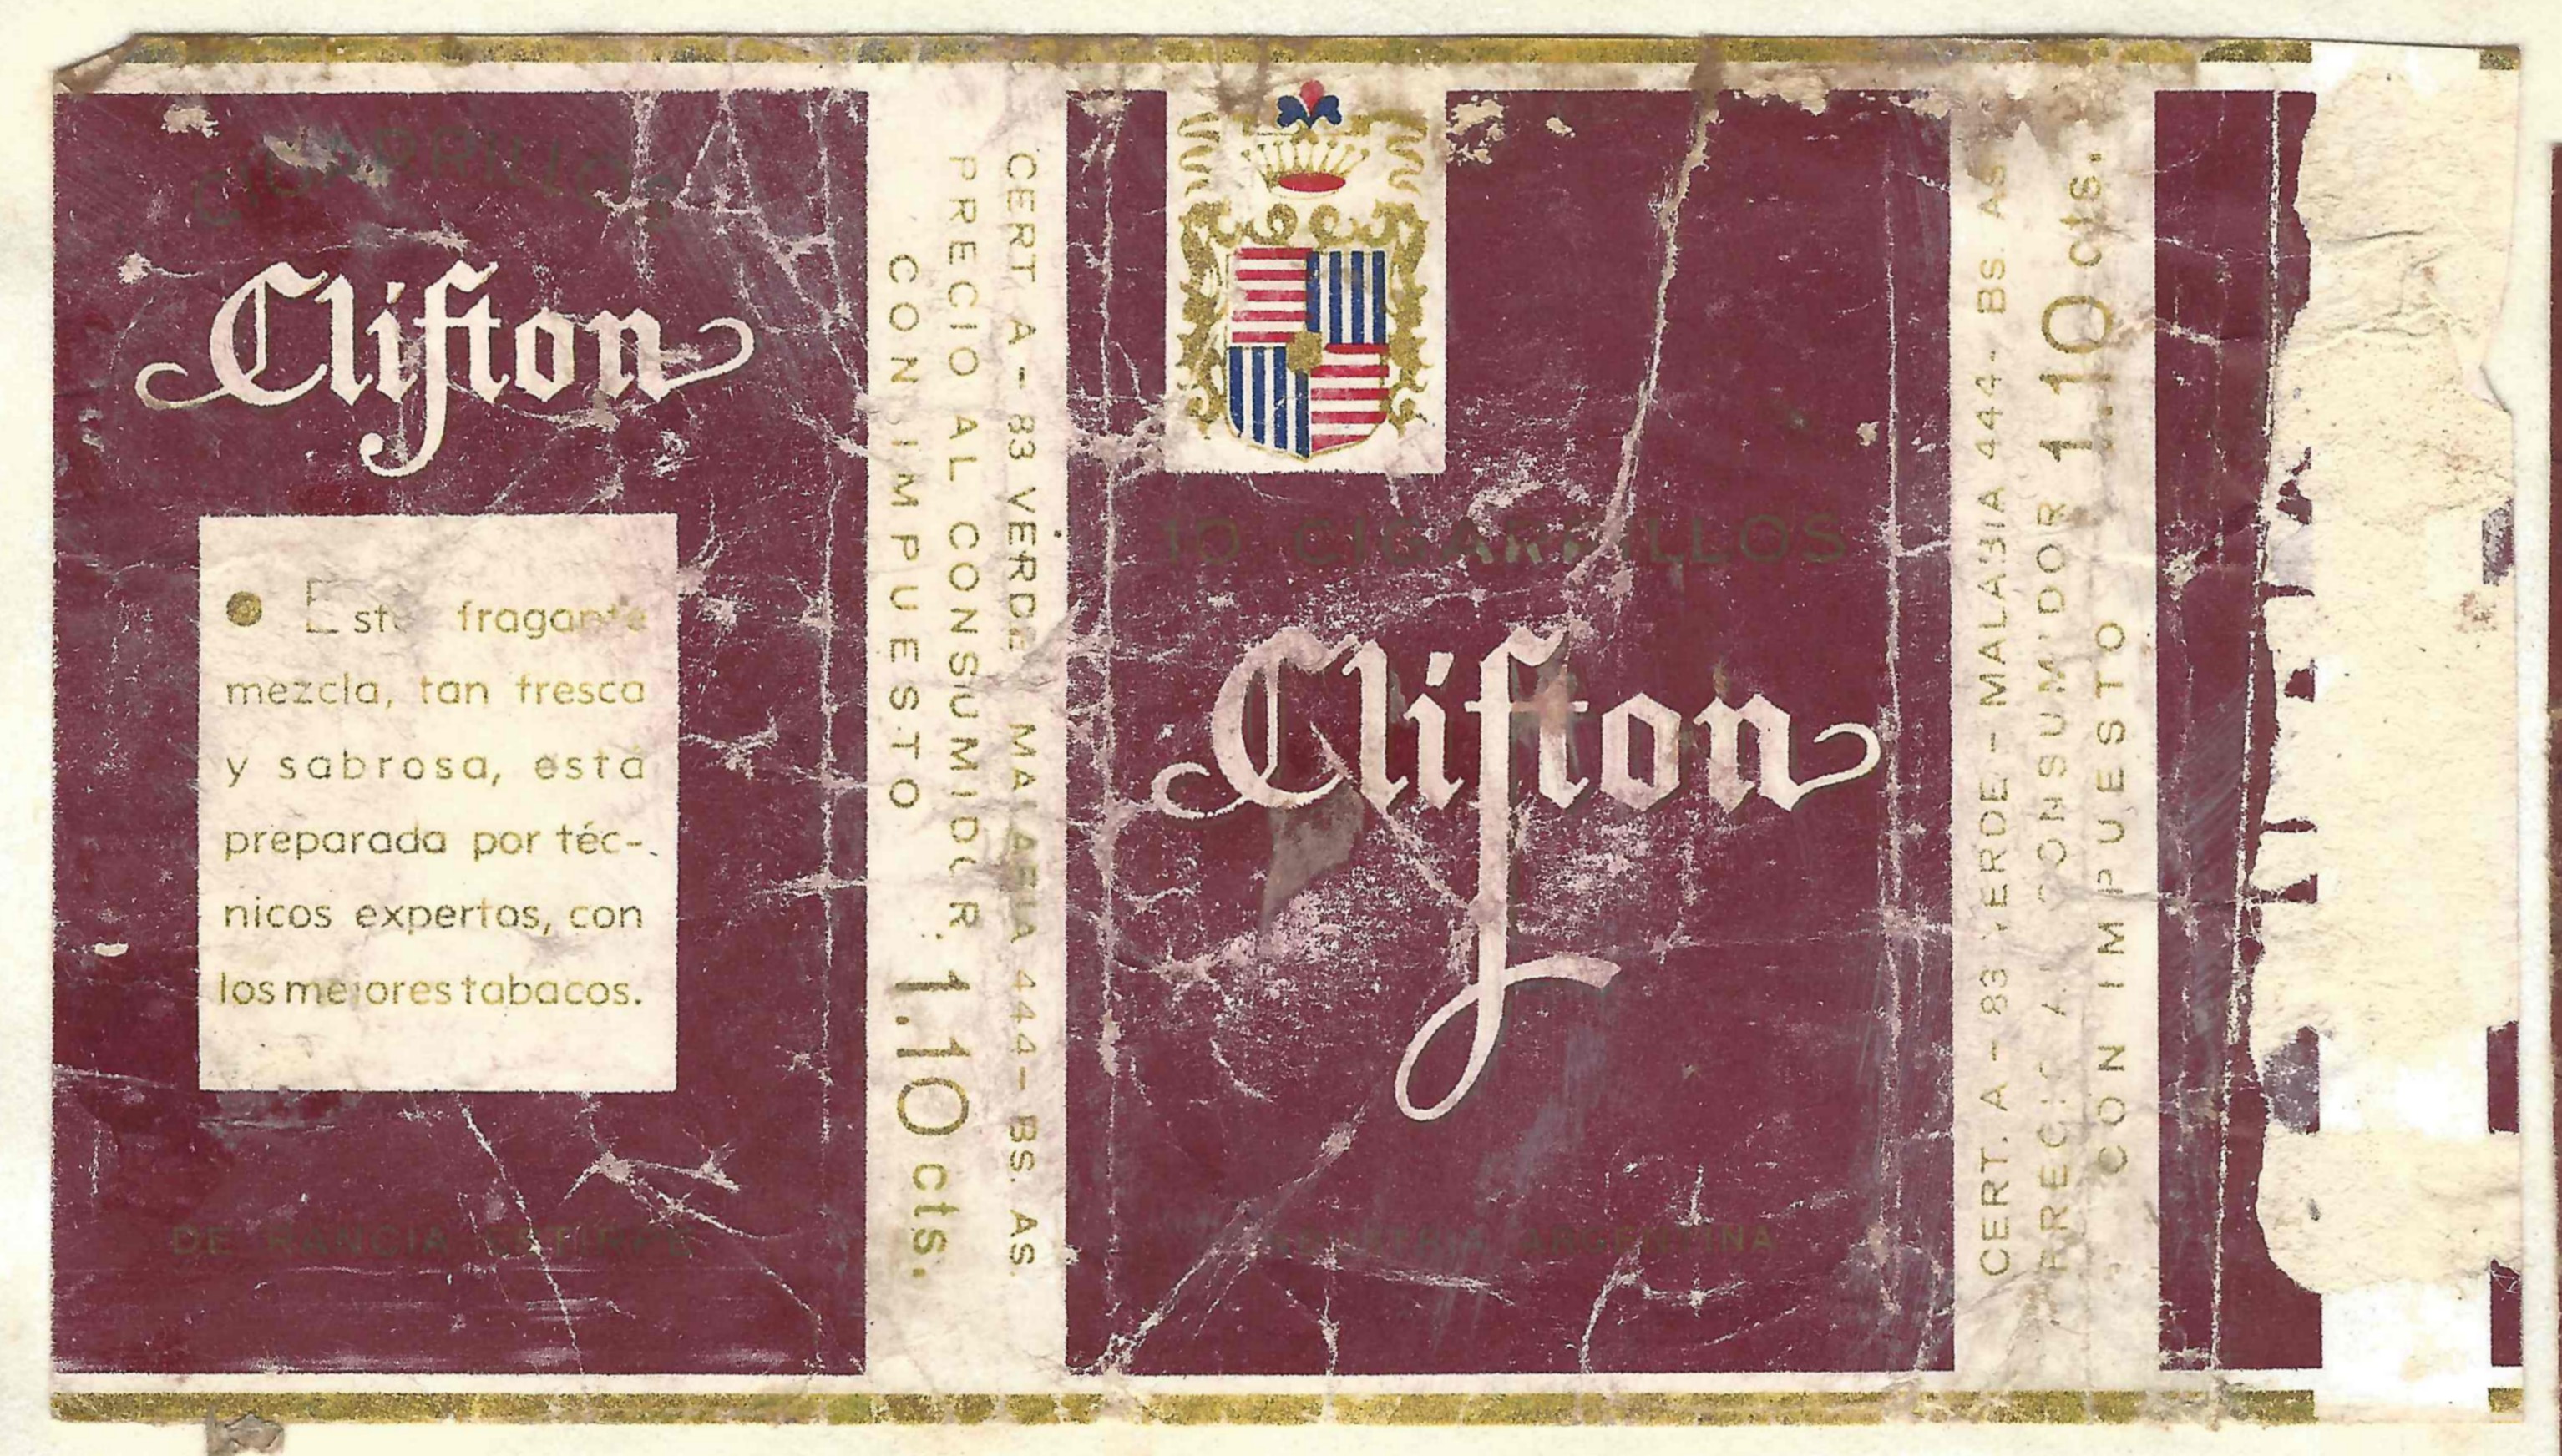 CIGARRILLOS
Clifton
● Esta fragante
mezcla, tan fresca
y sabrosa, está
preparada por téc-
nicos expertos, con
los mejores tabacos.
DE RANCIA ESTIRPE
CERT A - 83 VERDE MALABIA 444 - BS. AS.
PRECIO AL CONSUMIDOR 1.10 cts.
CON IMPUESTO
10 CIGARRILLOS
Clifton
INDUSTRIA ARGENTINA
CERT. A - 83 VERDE - MALABIA 444 - BS. AS
PRECIO AL CONSUMIDOR 1.10 cts.
CON IMPUESTO